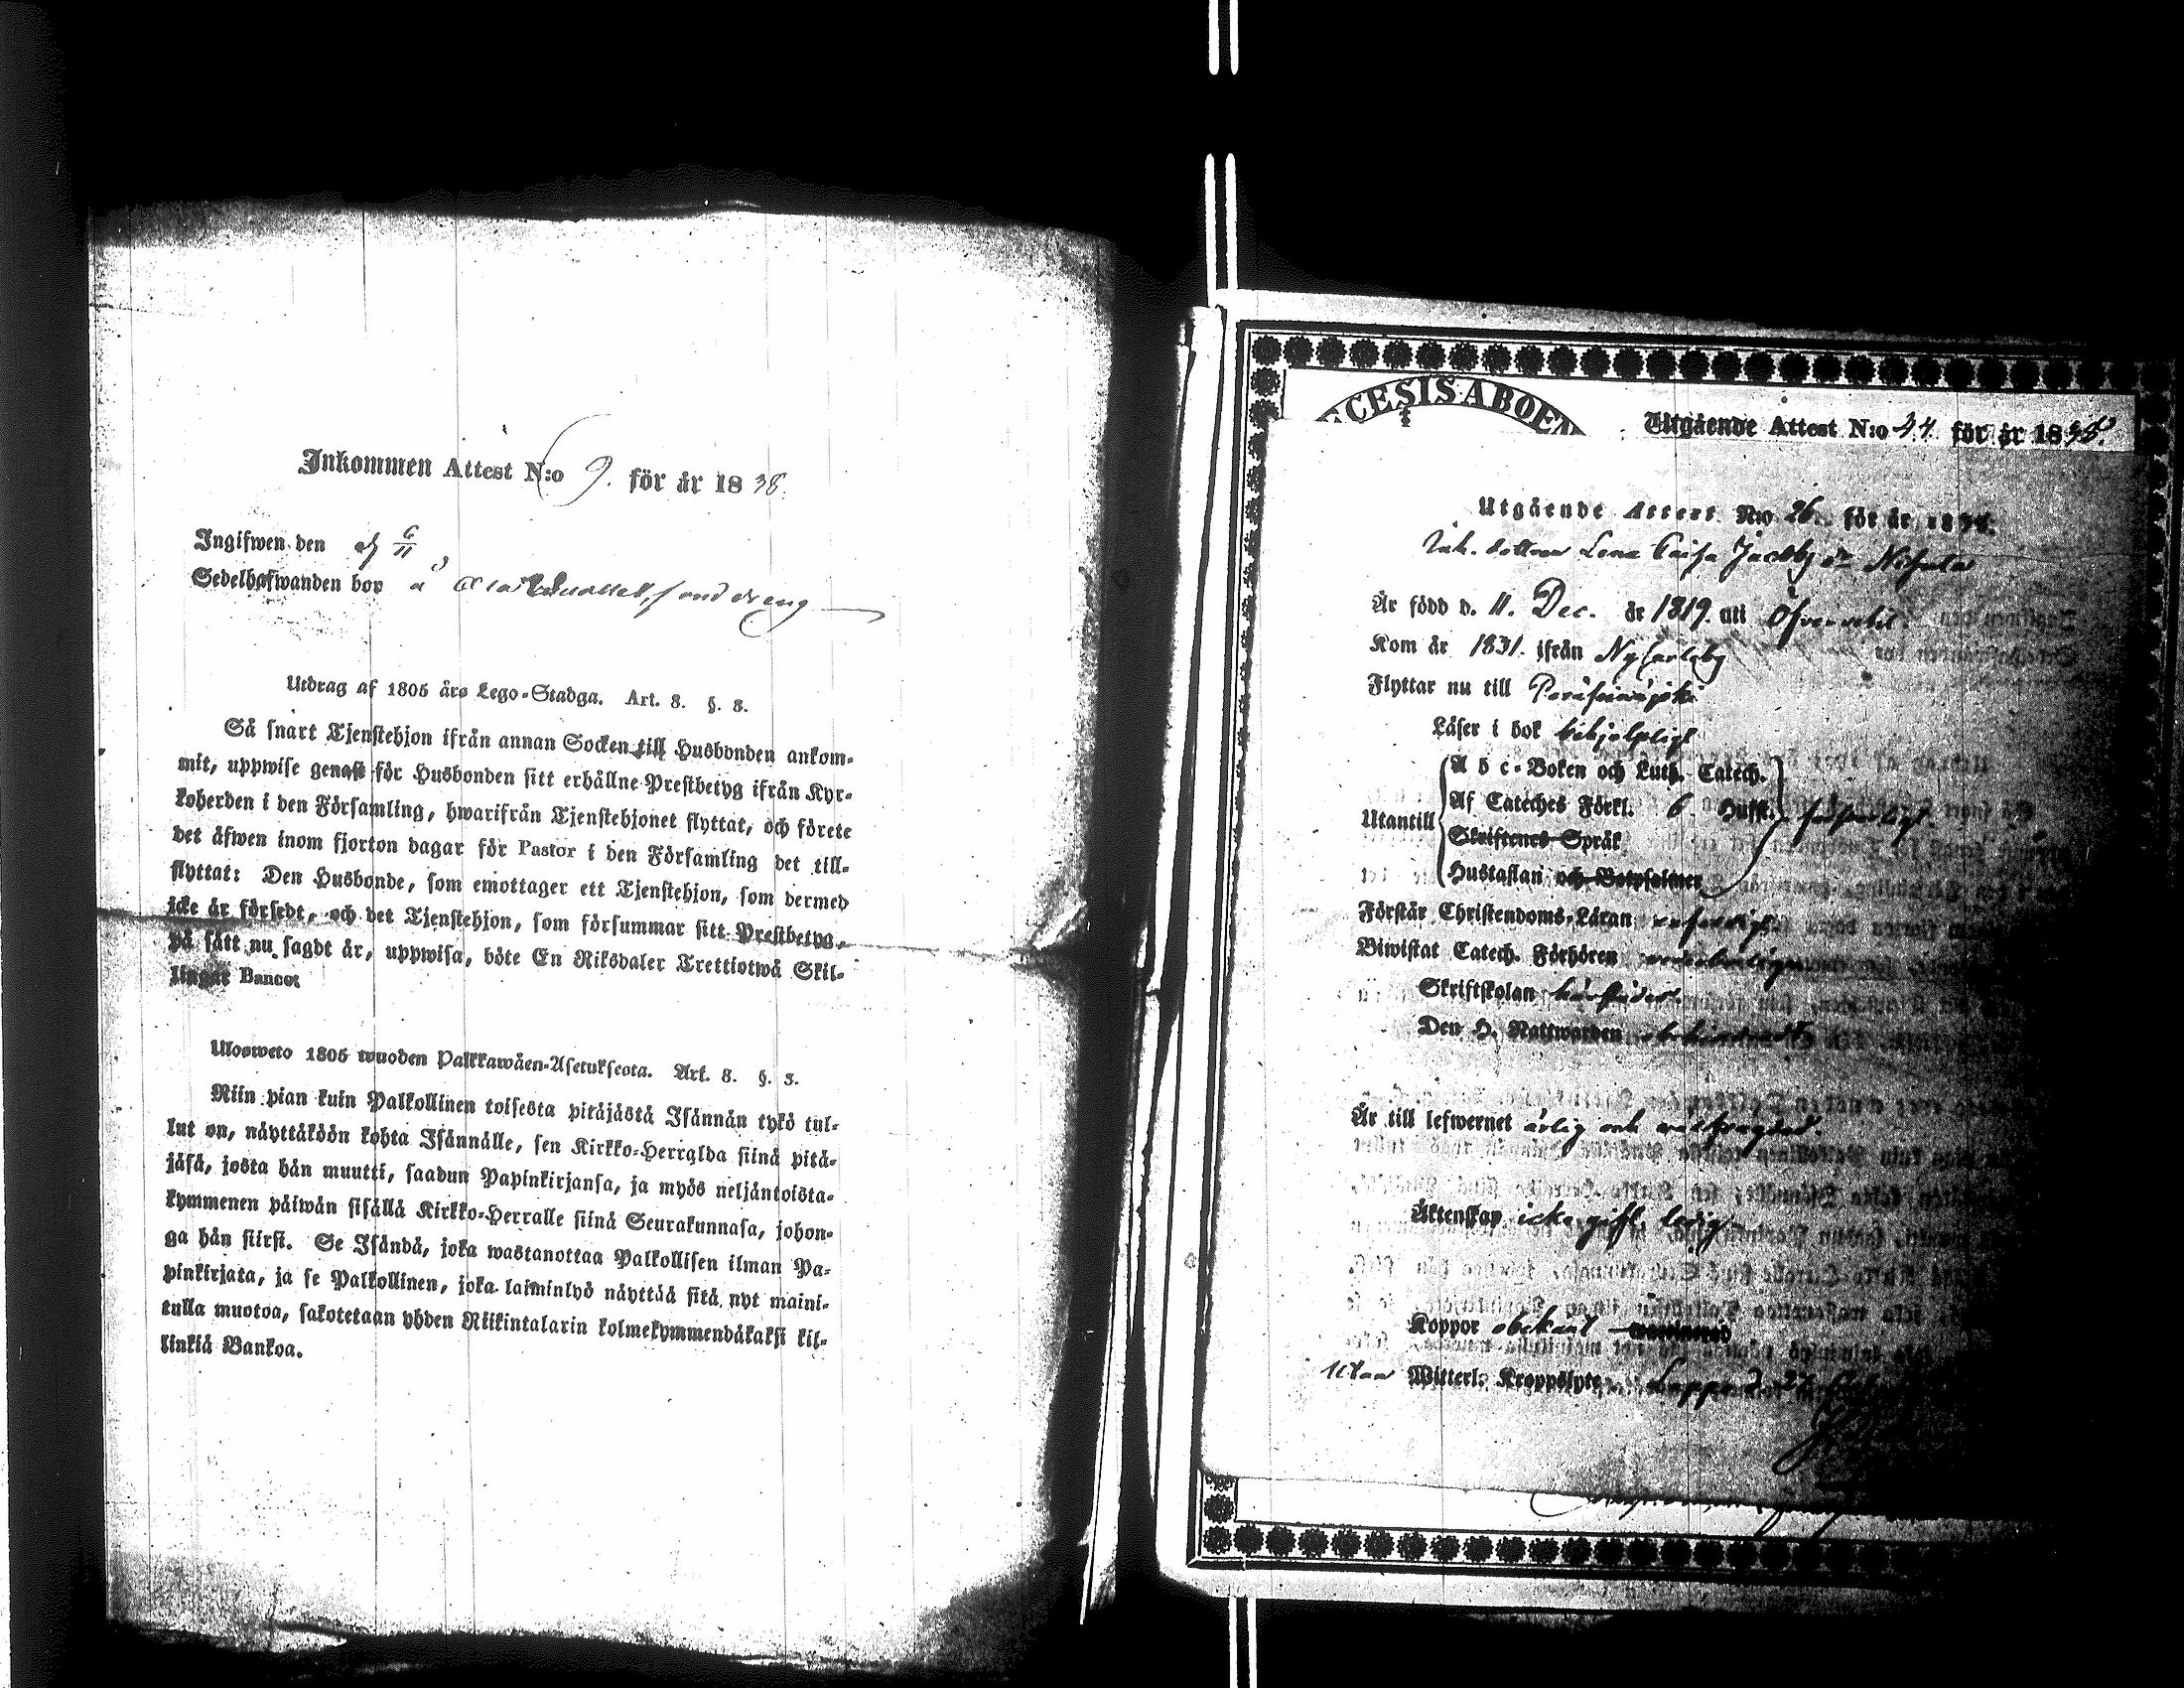 Inkommen Attest N:o 9. för år 1838.
Ingifwen den af 6/11
Sedelhafwanden bor å
Utdrag af 1805 års Lego-Stadga. Art. 8. §. 3.
Så snart Tjenstehjon ifrån annan Socken till Husbonden ankom-
mit, uppwise genast för Husbonden sitt erhållne Prestbetyg ifrån Kyr-
koherden i den Församling, hwarifrån Tjenstehjonet flyttat, och förete
det äfwen inom fjorton dagar för Pastor i den Församling det till-
flyttat: Den Husbonde, som emottager ett Tjenstehjon, som dermed
icke är försedt, och det Tjenstehjon, som försummar sitt Prestbetyg,
på sätt nu sagdt är, uppwisa, böte En Riksdaler Trettiotwå Skil-
lingar Banco:
Ulosweto 1805 wuoden Palkkawäen-Asetuksesta. Art. 8. §. 3.
Niin pian kuin Palkollinen toisesta pitäjästä Isännän tykö tul-
lut on, näyttäköön kohta Isännälle, sen Kirkko-Herralda siinä pitä-
jäsä, josta hän muutti, saadun Papinkirjansa, ja myös neljäntoista-
kymmenen päiwän sisällä Kirkko-Herralle siinä Seurakunnasa, johon-
ga hän siirsi. Se Isändä, joka wastanottaa Palkollisen ilman Pa-
pinkirjata, ja se Palkollinen, joka laiminlyö näyttää sitä nyt maini-
tulla muotoa, sakotetaan yhden Riikintalarin kolmekymmendäkaksi kil-
linkiä Bankoa.
CESIS ABOEN
Utgående Attest N:o 34 för år 1838.
Utgående Attest N:o 26. för år 18
Inh. dottren Lena Caisa Jacobs dr
Är född d. 11. Dec. år 1819. uti Öfvervetil
Kom år 1831. ifrån Nycarleby
Flyttar nu till Peräseinäjoki
Läser i bok behjelpligt
Utantill
A b c-Boken och Luth. Catech.
Af Cateches Förkl. 6 Hufst.
Skriftenes Språk
Hustaflan och Botpsalmer
Förstår Christendoms-Läran
Biwistat Catech. Förhören
Skriftskolan härstädes
Den H. Nattwarden obehindradt
Är till lefwernet ärlig och wälfrägdad.
Äktenskap icke gift, ledig
Koppor obekant vaccinerad
Utan Witterl. Kroppslyte. Lappo d. 27